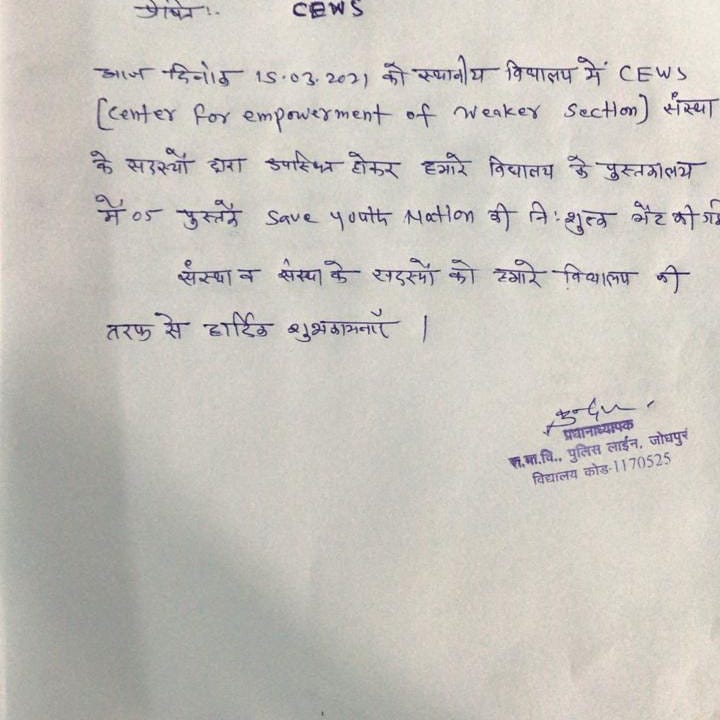 प्रेषित:- CEWS
आज दिनांक 15.03.2021 को स्थानीय विद्यालय में CEWS
[Center for empowerment of Weaker Section] संस्था
के सदस्यों द्वारा उपस्थित होकर हमारे विद्यालय के पुस्तकालय
में 05 पुस्तकें Save youth Nation की नि:शुल्क भेंट की गई
संस्था व संस्था के सदस्यों को हमारे विद्यालय की
तरफ से हार्दिक शुभकामनाएँ |
प्रधानाध्यापक
रा.मा.वि., पुलिस लाईन, जोधपुर
विद्यालय कोड-1170525